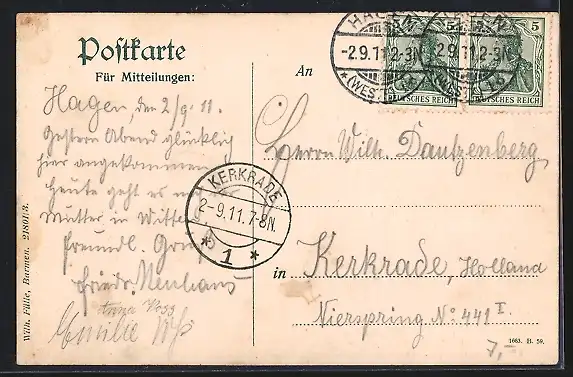 Postkarte
Für Mitteilungen:
An
HAGEN
-2.9.11.2-3N.
*(WESTF.)
2.9.11.2-3N.
5
DEUTSCHES REICH
DEUTSCHES REICH
Hagen, den 2/9. 11.
Gestern Abend glücklich
hier angekommen
Heute geht es n
Mutter in Witte
freundl. Gru
Friedr. Neuhaus
Anna Voss
Emilie
KERKRADE
2-9.11.7-8N.
* 1 *
Herrn Wilh. Dautzenberg,
in Kerkrade, Holland
Nierspring No. 441 I.
Wilh. Fülle, Barmen. 21801/3.
1663. B. 59.
7,-